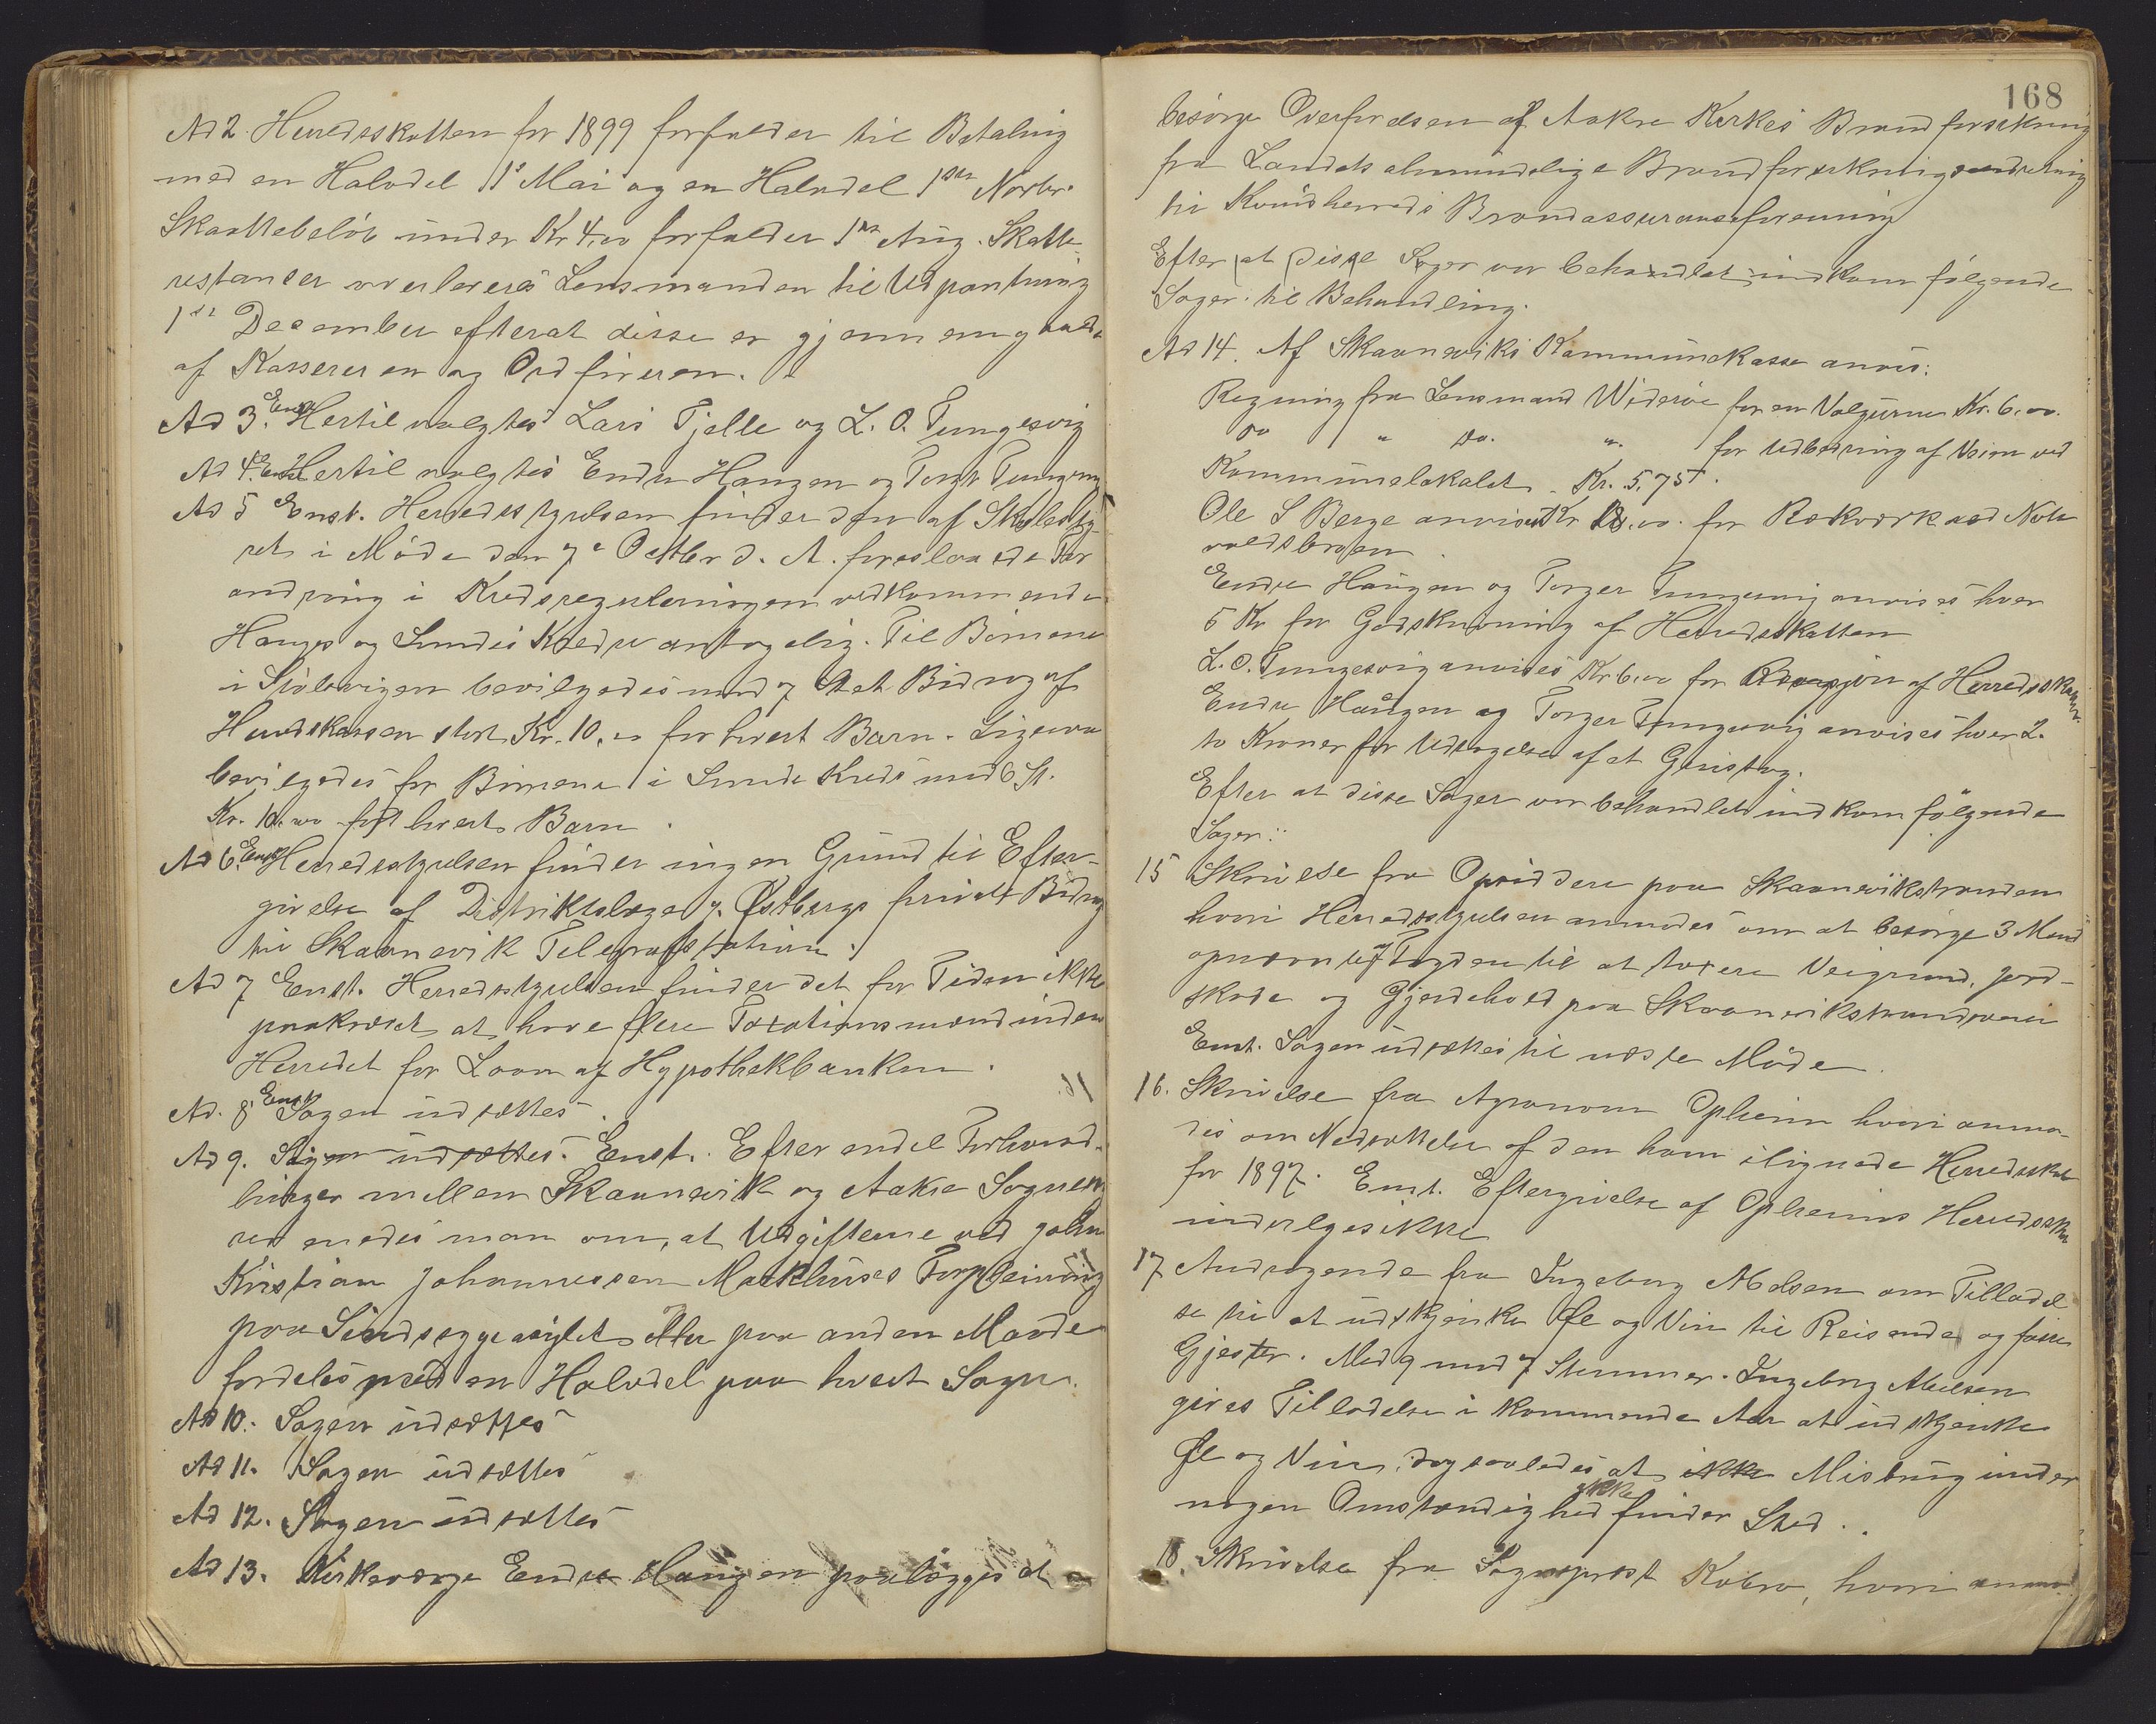 Ad 2. Herredsskatten for 1899 forfalder til Betaling
med en Halvdel 1ste Mai og en Halvdel 1ste Novbr.
Skattebeløb under Kr 4,00 forfalder 1ste Aug. Skatte-
restancer overleveres Lensmanden til Udpantning
1ste December efterat disse er gjennemgaaede
af Kassereren og Ordføreren.
Ad 3. Enst Hertil valgtes Lars Tjelle og L. O. Tungesvig
Ad 4. Enst Hertil valgtes Endre Haugen og Torger Tungesvig
Ad 5 Enst. Herredsstyrelsen finder den af Skolesty-
ret i Møde den 7de Octbr d. A. foreslaaede For-
andring i Kredsreguleringen vedkommende
Hauges og Sundes Kredse antagelig. Til Børnene
i vigen bevilgedes mod 7 St et Bidrag af
Herredskassen stort Kr. 10,00 for hvert Barn. Ligesaa
bevilgedes for Børnene i Sunde Kreds mod 6 St.
Kr. 10.00 for hvert Barn.
Ad 6. Enst Herredsstyrelsen finder ingen Grund til Efter-
givelse af Distriktslæge J. Østbergs private Bidrag
til Skaanevik Telegrafstation.
Ad 7 Enst. Herredsstyrelsen finder det for Tiden ikke
paakrævet at have flere Taxationsmænd inden
Herredet for Laan af Hypothekbanken.
Ad. 8 Enst Sagen udsættes.
Ad 9. Sagen udsættes. Enst. Efter endel Forhand-
linger mellem Skaanevik og Aakre Sogne
enedes man om, at Udgifterne ved John
Kristian Johannessen Markhuses Forpleining
paa Sindssygeasylet eller paa anden Maade
fordeles med en Halvdel paa hvert Sogn.
Ad 10. Sagen udsættes
Ad 11. Sagen udsættes
Ad 12. Sagen udsættes
Ad 13. Kirkeværge Endre Haugen paalægges at
168
besørge Overførelsen af Aakre Kirkes Brandforsikring
fra Landets almindelige Brandforsikringsindretning
til Kvindherreds Brandassuranceforening
Efter at disse Sager var behandlet indkom følgende
Sager til Behandling.
Ad 14. Af Skaaneviks Kommunekasse anvis:
Regning fra Lensmand Widerøe for en Valgurne Kr. 6,00.
Do " Do. " for Udbedring af Veien ved
Kommunelokalet - Kr. 5,75.
Ole S Berge anvises Kr 18,00. for Rækværk ved
voldsbroen.
Endre Haugen og Torger Tungesvig anvises hver
5 Kr for Godskrivning af Herredsskatten
L. O. Tungesvig anvises Kr 6,00 for Revisjon af Herredsskassen.
Endre Haugen og Torger Tungesvig anvises hver 2.
to Kroner for Udsøgelse af et
Efter at disse Sager var behandlet indkom følgende
Sager:
15 Skrivelse fra Opsiddere paa Skaanevikstranden
hvori Herredsstyrelsen anmodes om at besørge 3 Mænd
opnævnt af Fogden til at taxere Veigrund, Jord-
skade og Gjerdehold paa Skaanevikstrandveien
Enst. Sagen udsættes til næste Møde.
16. Skrivelse fra Agronom Opheim hvori anmo-
des om Nedsættelse af den ham ilignede Herredsskat
for 1897. Enst. Eftergivelse af Opheims Herredsskat
indvilges ikke
17 Andragende fra Ingeborg Abelsen om Tilladel-
se til at udskjenke Øl og Vin til Reisende og faste
Gjester. Med 9 mod 7 Stemmer. Ingeborg Abelsen
gives Tilladelse i kommende Aar at udskjenke
Øl og Vin, dog saaledes at ikke Misbrug under
nogen Omstændighed ikke finder Sted.
18. Skrivelse fra Sogneprest Kobro, hvori anmo-